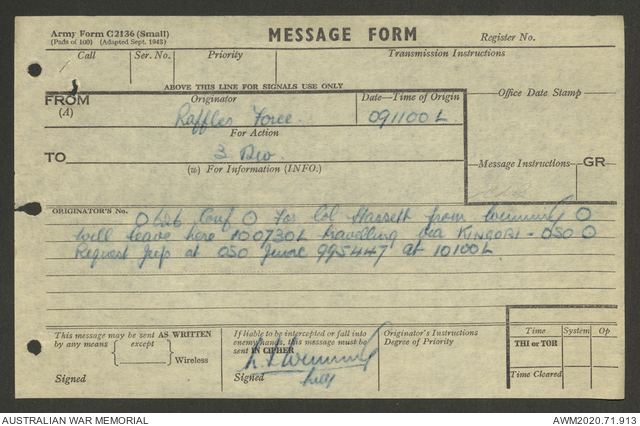 Army Form C2136 (Small)
(Pads of 100) (Adapted Sept. 1943)
MESSAGE FORM
Register No.
Call
Ser. No.
Priority
Transmission Instructions
ABOVE THIS LINE FOR SIGNALS USE ONLY
FROM
(A)
Originator
Date—Time of Origin
Office Date Stamp
Raffles Force
091100 L
For Action
TO
3 Div
(w) For Information (INFO.)
Message Instructions
GR
ORIGINATOR'S No.
O 626 Conf O For Col Hassett from O
will leave here 100730L travelling via KINGORI - 050 O
Request jeep at 050 junc 995447 at 10100L
This message may be sent AS WRITTEN
by any means except
Wireless
Signed
If liable to be intercepted or fall into
enemy hands, this message must be
sent IN CIPHER
Signed
Originator's Instructions
Degree of Priority
Time
System
Op
THI or TOR
Time Cleared
AUSTRALIAN WAR MEMORIAL
AWM2020.71.913